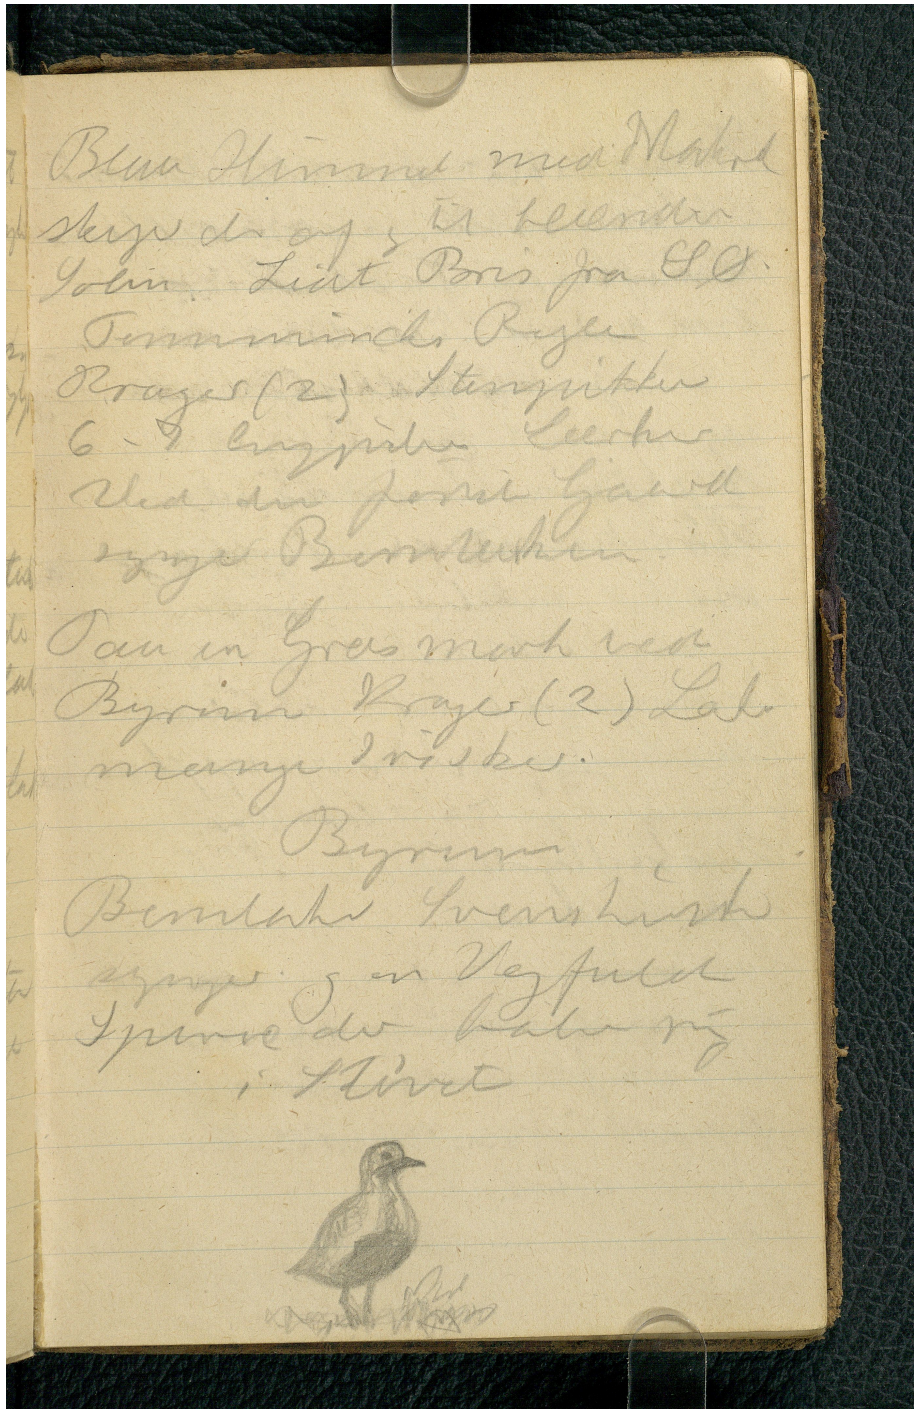 Blaa Himmel med Makrel
skyer der af og til blænder
Solen. Lidt Bris fra S.Ø.
Temmincks Ryle
Krager (2). Stenpikker
6-7 Engpiber Lærker
Ved den første Gaard
synger Bomlærken.
Paa en Græsmark ved
Byrum Krager (2)
mange Irisker.
Byrum
Bomlærke Svenskirisk
synger. og en Vejfuld
Spurve der bader sig
i Støvet